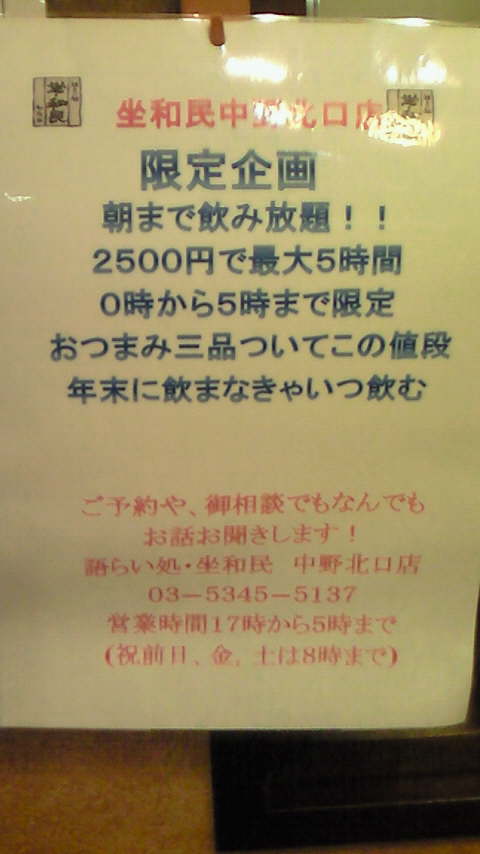 坐和民中野北口店
限定企画
朝まで飲み放題！！
2500円で最大5時間
0時から5時まで限定
おつまみ三品ついてこの値段
年末に飲まなきゃいつ飲む
ご予約や、御相談でもなんでも
お話お聞きします！
語らい処・坐和民　中野北口店
03－5345－5137
営業時間17時から5時まで
(祝前日、金、土は8時まで)